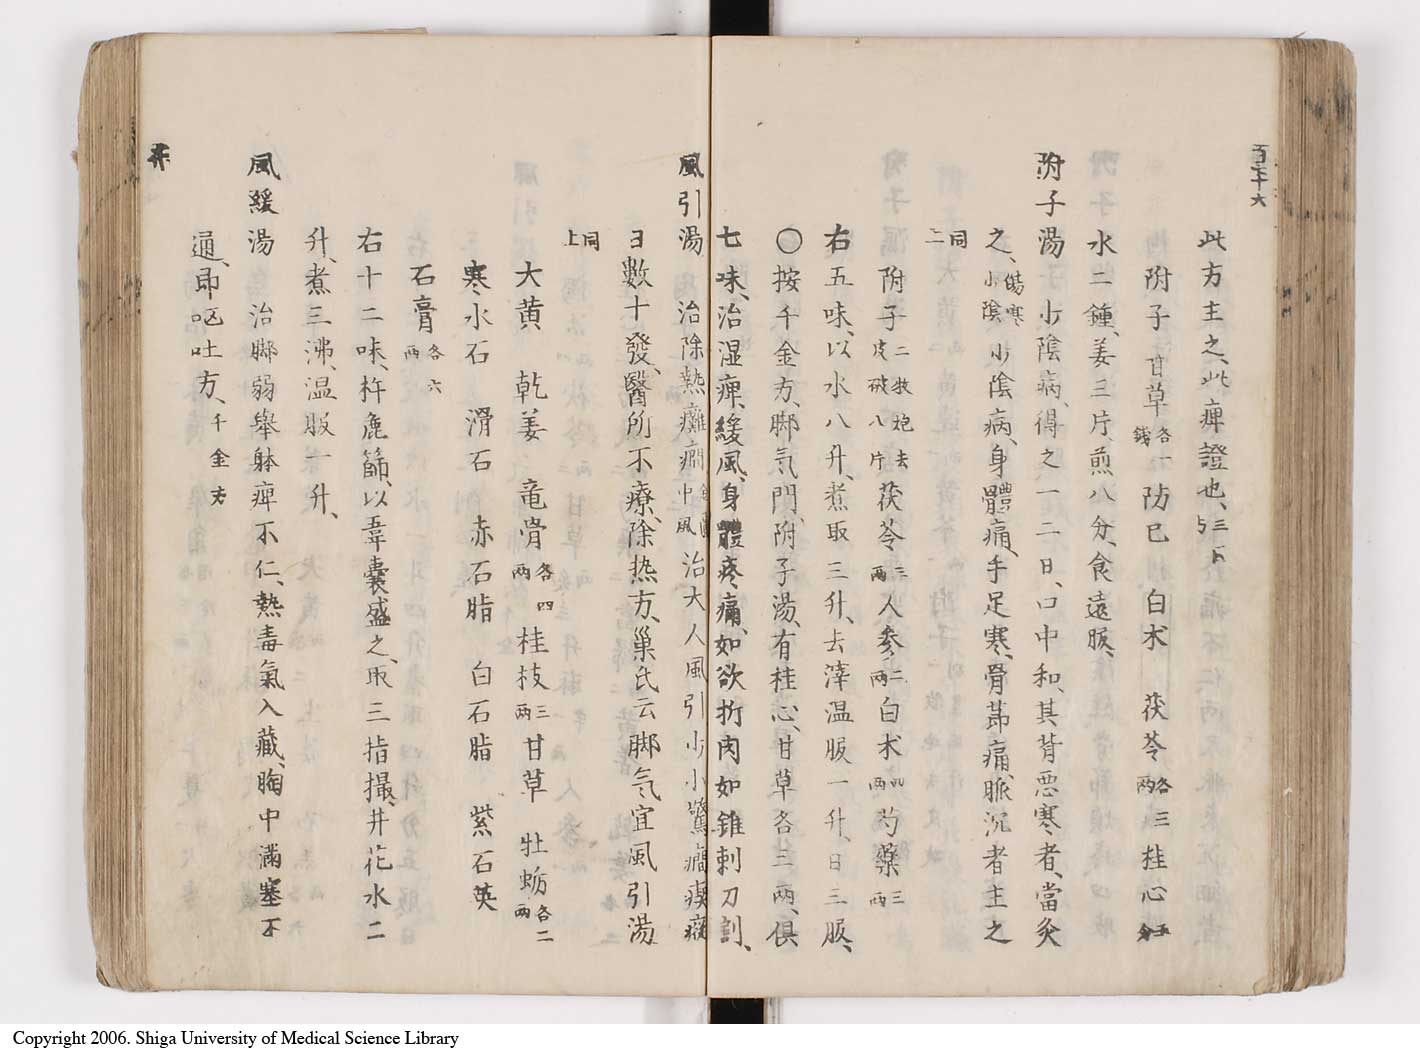 百二十六
此方主之、此痺證也、三ノ下
附子 甘草各一錢 防已 白术 茯苓各三兩 桂心五分
水二鍾、姜三片、煎八分、食遠服、
附子湯 少陰病、得之一二日、口中和、其背悪寒者、當灸
之、傷寒少陰 少陰病、身體痛、手足寒、骨節痛、脈沉者主之
同二
附子二枚炮去皮破八片 茯苓三兩 人参二兩 白术四兩 芍藥三兩
右五味、以水八升、煮取三升、去滓温服一升、日三服、
〇按千金方、脚気門、附子湯、有桂心、甘草各三兩、倶
七味、治湿痺、緩風、身體疼痛、如欲折肉如錐刺刀割、
風引湯 治除熱癱癇 中風 治大人風引少小驚癇瘈瘲
日數十發、醫所不療、除热方、巢氏云脚气宜風引湯
同上
大黄 乾姜 竜骨各四兩 桂枝三兩 甘草 牡蛎各二兩
寒水石 滑石 赤石脂 白石脂 紫石英
石膏各六兩
右十二味、杵麁篩、以韋囊盛之、取三指撮、井花水二
升、煮三沸、温服一升、
風緩湯 治脚弱舉躰痺不仁、熱毒氣入藏、胸中滿塞不
通、即呕吐方、千金方
Copyright 2006. Shiga University of Medical Science Library